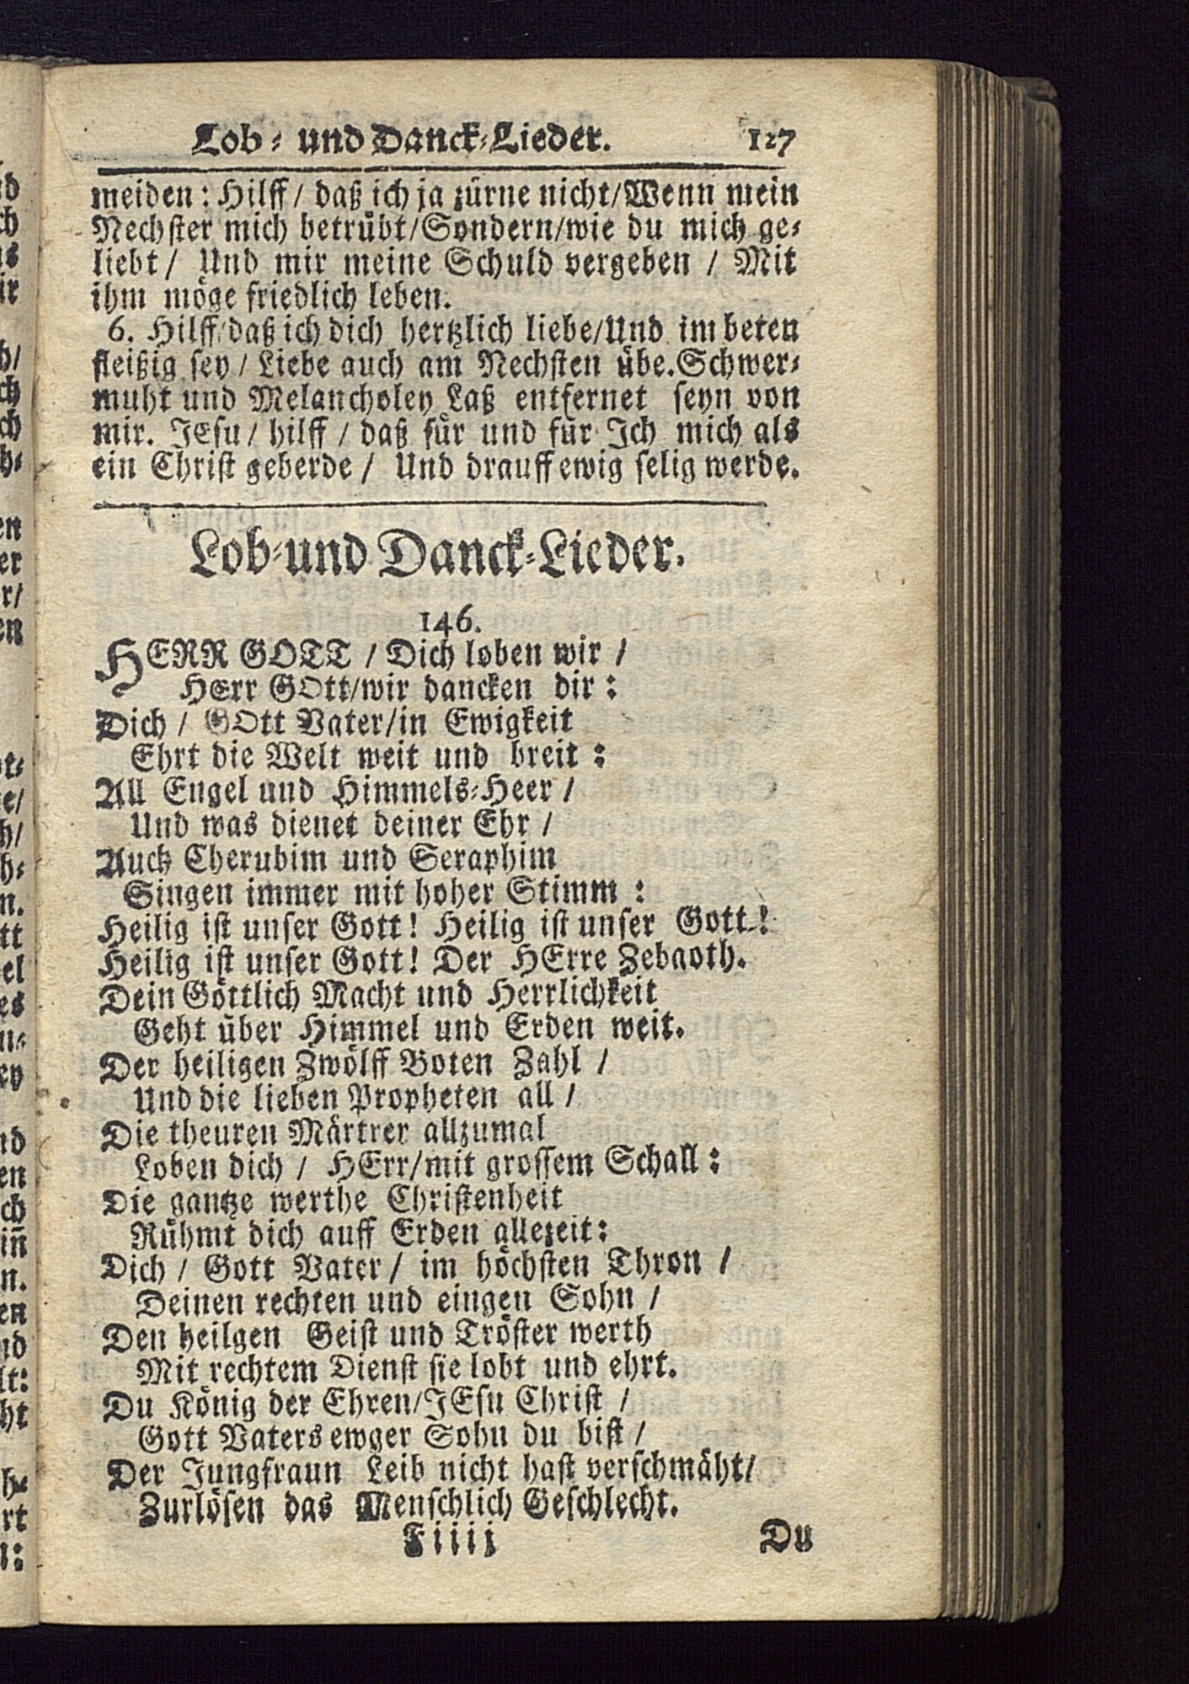 Lob- und Danck-Lieder. 127
meiden: Hilff / daß ich ja zürne nicht / Wenn mein
Nechster mich betrübt / Sondern / wie du mich ge-
liebt / Und mir meine Schuld vergeben / Mit
ihm möge friedlich leben.
6. Hilff / daß ich dich hertzlich liebe / Und im beten
fleißig sey / Liebe auch am Nechsten übe. Schwer-
muht und Melancholey Laß entfernet seyn von
mir. JEsu / hilff / daß für und für Ich mich als
ein Christ geberde / Und drauff ewig selig werde.
Lob- und Danck-Lieder.
146.
HERR GOTT / Dich loben wir /
HErr GOtt / wir dancken dir:
Dich / GOtt Vater / in Ewigkeit
Ehrt die Welt weit und breit:
All Engel und Himmels-Heer /
Und was dienet deiner Ehr /
Auch Cherubim und Seraphim
Singen immer mit hoher Stimm:
Heilig ist unser Gott! Heilig ist unser Gott!
Heilig ist unser Gott! Der HErre Zebaoth.
Dein Göttlich Macht und Herrlichkeit
Geht über Himmel und Erden weit.
Der heiligen Zwölff Boten Zahl /
Und die lieben Propheten all /
Die theuren Märtrer allzumal
Loben dich / HErr / mit grossem Schall:
Die gantze werthe Christenheit
Rühmt dich auff Erden allezeit:
Dich / Gott Vater / im höchsten Thron /
Deinen rechten und eingen Sohn /
Den heilgen Geist und Tröster werth
Mit rechtem Dienst sie lobt und ehrt.
Du König der Ehren / JEsu Christ /
Gott Vaters ewger Sohn du bist /
Der Jungfraun Leib nicht hast verschmäht /
Zurlösen das Menschlich Geschlecht.
F iiii Du